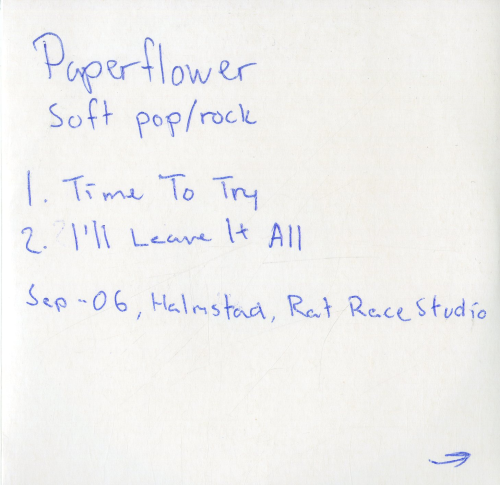 Paperflower
Soft pop/rock
1. Time To Try
2. I'll Leave It All
Sep-06, Halmstad, Rat Race Studio